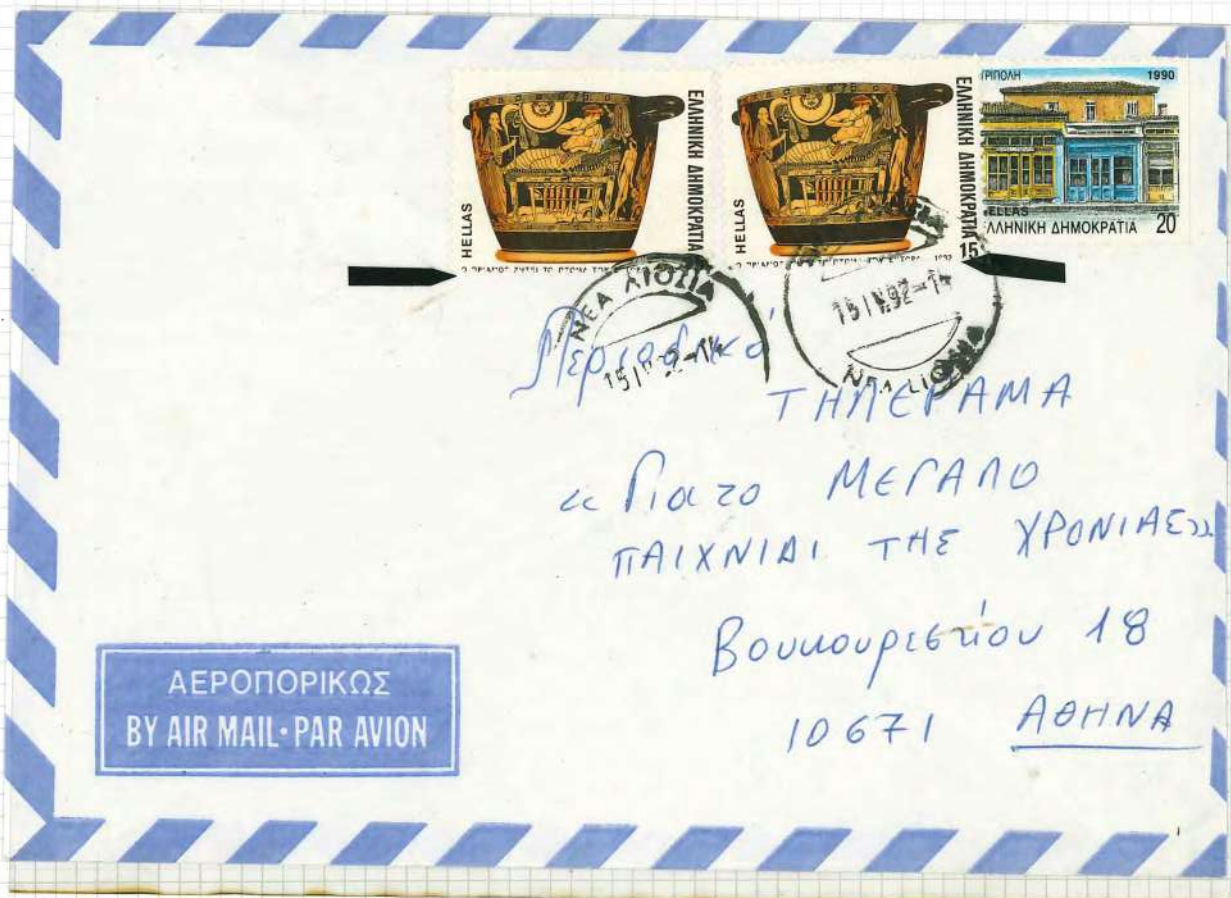 HELLAS
ΕΛΛΗΝΙΚΗ ΔΗΜΟΚΡΑΤΙΑ
HELLAS
ΕΛΛΗΝΙΚΗ ΔΗΜΟΚΡΑΤΙΑ
15
ΡΙΠΟΛΗ 1990
HELLAS
ΛΛΗΝΙΚΗ ΔΗΜΟΚΡΑΤΙΑ 20
ΝΕΑ ΛΙΟΣΙΑ
15 92-14
ΝΕΑ ΛΙΟΣΙΑ
Περιοδικό
ΤΗΛΕΡΑΜΑ
«Για το ΜΕΓΑΛΟ
ΠΑΙΧΝΙΔΙ ΤΗΣ ΧΡΟΝΙΑΣ»
Βουκουρεστίου 18
10671 ΑΘΗΝΑ
ΑΕΡΟΠΟΡΙΚΩΣ
BY AIR MAIL•PAR AVION